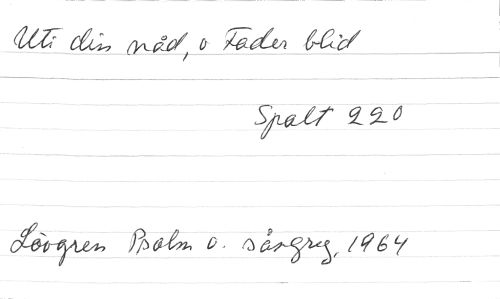 Uti din nåd, o Fader blid
Spalt 220
Lövgren Psalm o. sånglex, 1964